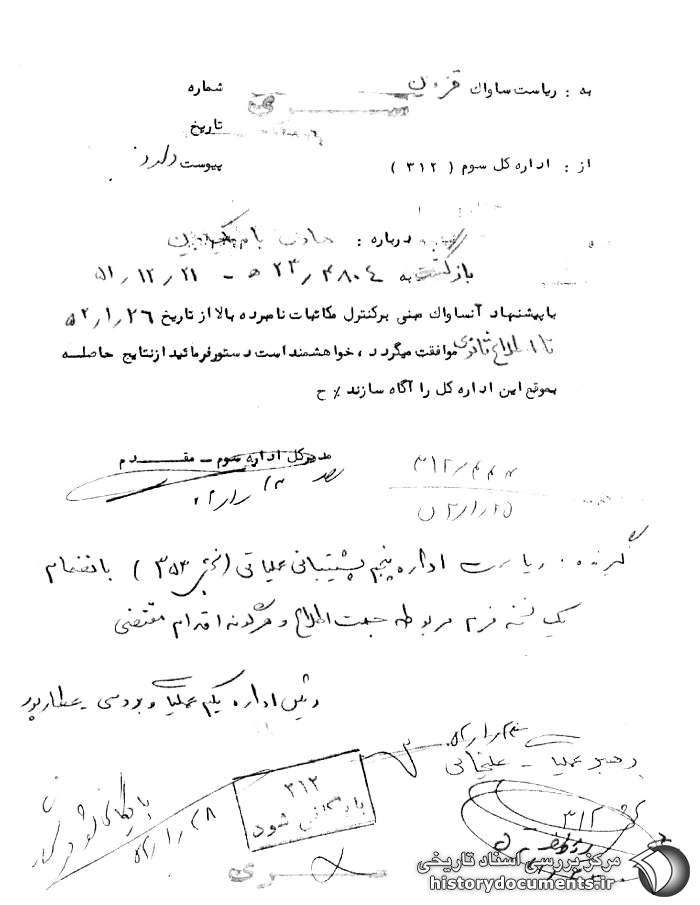 به : ریاست ساواك قزوین
شماره
تاریخ
از : اداره کل سوم ( ۳۱۲ )
پیوست دارد
درباره :
بازگشت به ۲۳/۴۸۰۴ ه - ۵۱/۱۲/۲۱
با پیشنهاد آنساواك مبنی برکنترل مکاتبات نامبرده بالا از تاریخ ۵۲/۱/۲۶
تا اطلاع ثانوی موافقت میگردد ، خواهشمند است دستور فرمائید از نتایج حاصلـه
بموقع این اداره کل را آگاه سازند ٪ ح
مدیرکل اداره سوم - مقـــدم
۳۱۲/
۵۲/۱/۲۵
گیرنده : ریاست اداره پنجم پشتیبانی عملیاتی (بخش ۳۵۳) بانضمام
یک نسخه فرم مربوطه جهت اطلاع و هرگونه اقدام مقتضی
رئیس اداره یکم عملیات و بررسی - عطارپور
رهبر عملیات -
۳۱۲
بایگانی شود
۳۱۲
بایگانی
۵۲/۱/۲۸
ســری
مرکز بررسی اسناد تاریخی
historydocuments.ir